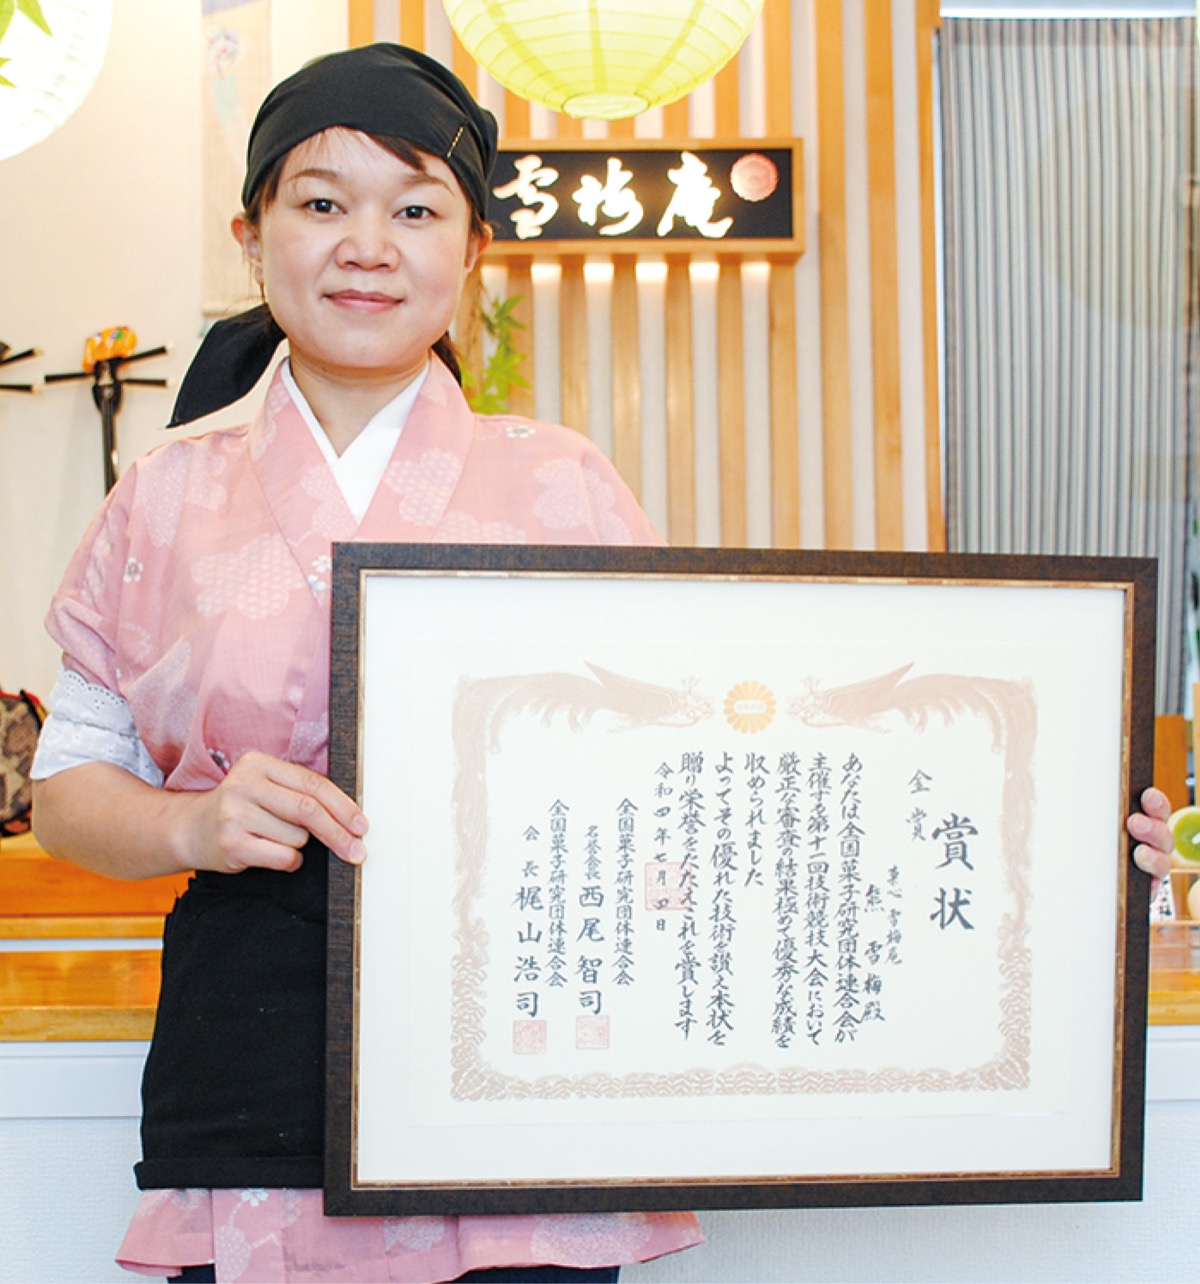 雪梅庵
賞状
金賞
菓心 雪梅庵
熊 雪梅殿
あなたは全国菓子研究団体連合会が
主催する第十一回技術競技大会において
厳正な審査の結果極めて優秀な成績を
収められました
よってその優れた技術を讃え本状を
贈り栄誉をたたえこれを賞します
令和四年七月四日
全国菓子研究団体連合会
名誉会長 西尾智司
全国菓子研究団体連合会
会長 梶山浩司